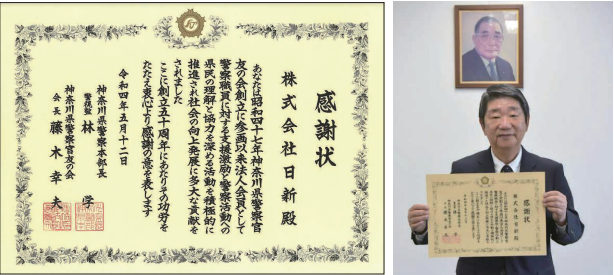 感謝状
株式会社日新殿
あなたは昭和四十七年神奈川県警察官
友の会創立に参画以来法人会員として
警察職員に対する支援激励や警察活動への
県民の理解と協力を深める活動を積極的に
推進され社会の向上発展に多大な貢献を
されました
ここに創立五十周年にあたりその功労を
たたえ衷心より感謝の意を表します
令和四年五月十二日
神奈川県警察本部長
警視監 林 学
神奈川県警察官友の会
会長 藤木幸夫
感謝状
株式会社日新殿